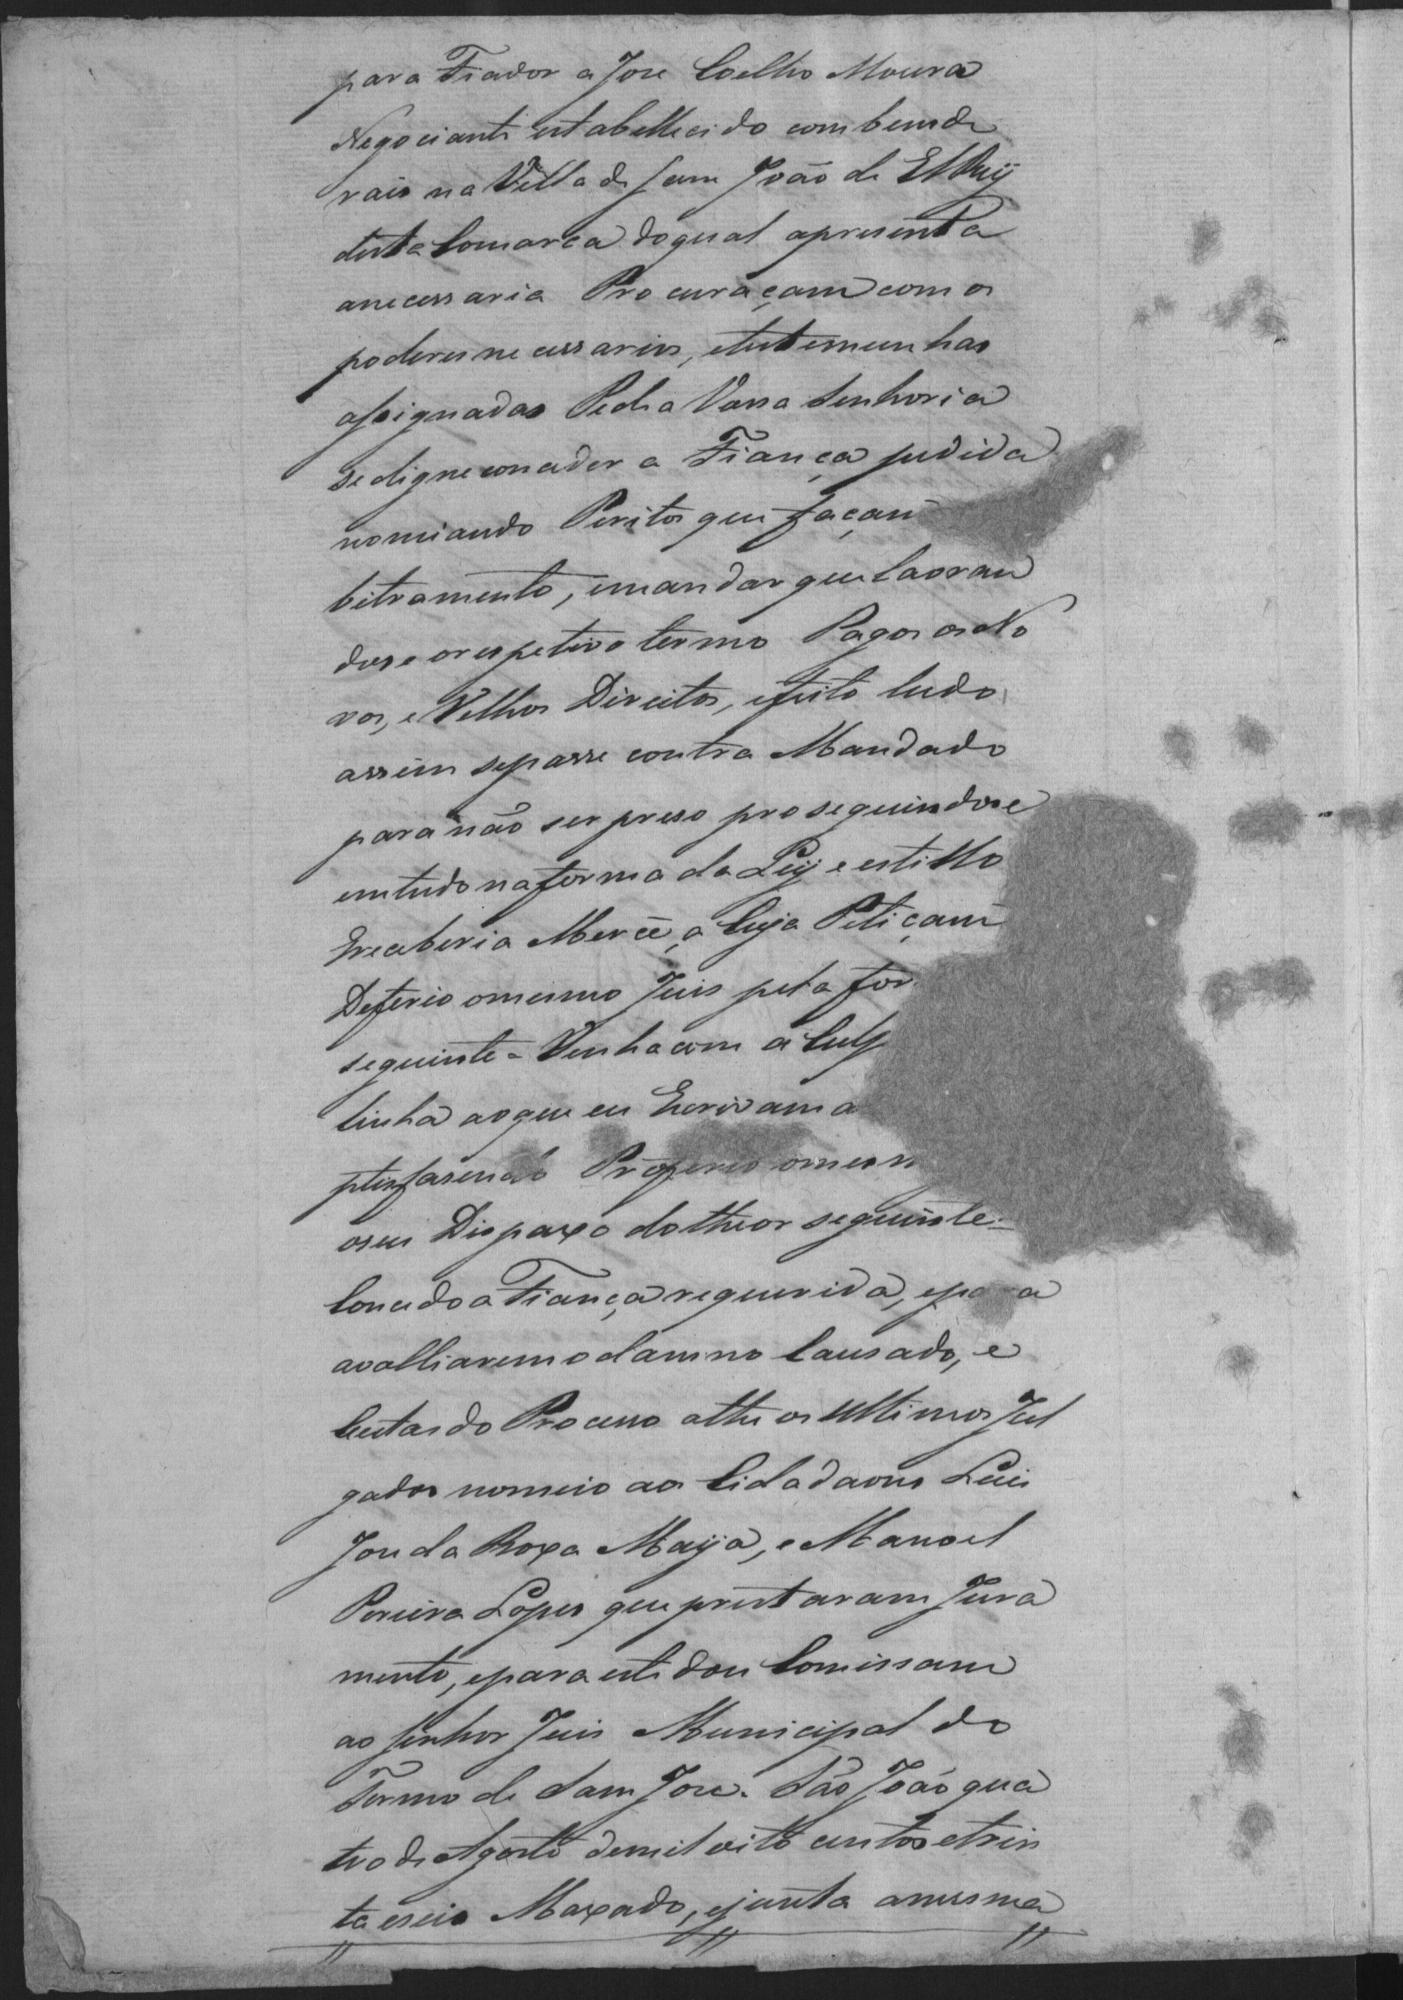 para Fiador a Jose Coelho Moura
Negociante estabellecido com bens de
rais na Villa de Sam João de ElReÿ
desta Comarca do qual apresenta
a necessaria Procuraçam com os
poderes necessarios, e testemunhas
assignadas Pede a Vossa Senhoria
se digne conceder a Fiança pedida
nomiando Peritos que façam
bitramento, e mandar que lavran
dose o respetivo termo Pagos os No
vos, e Velhos Direitos, e feito tudo
assim se passe contra Mandado
para não ser preso proseguindose
em tudo na forma da Leÿ e estillo
E recebera Mercê, a Cuja Petiçam
Deferio o mesmo Juis pela for
seguinte = Venha com a Culp
tinha ao que eu Escrivam a
fasendo o mesm
o seu Dispaxo do theor seguinte =
Concedo a Fiança requerida, e para
avalliarem o damno Causado, e
Custas do Processo athe os ultimos Jul
gados nomeio aos Cidadaons Luis
Jose da Roxa Maÿa, e Manoel
Pereira Lopes que prestaram Jura
mento, e para este dou Comissam
ao Senhor Juis Municipal do
Termo de Sam Jose. São João qua
tro de Agosto de mil oito centos e trin
ta e seis Maxado, e junta a mesma